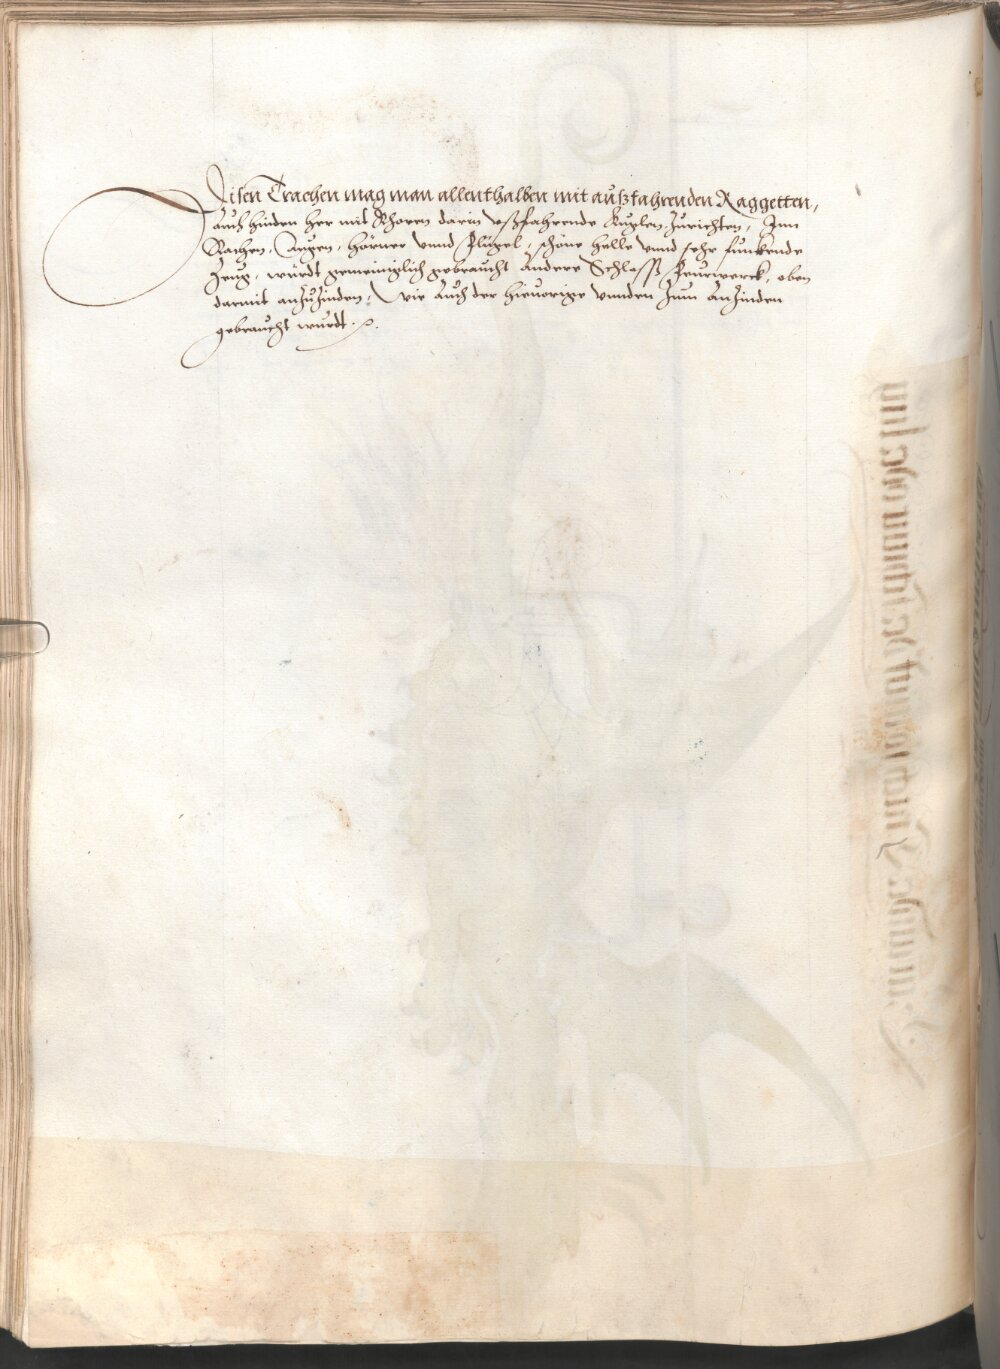 Disen Trachen mag man allenthalben mit außfahrenden Raggetten,
auch hinden her mit Rhoren darin vßfahrende Kuglen Zurichten, Inn
Rachen, Augen, hörner vnnd Flügel, schöne helle vnnd sehr funckende
Zeug, würdt gemeiniglich gebraucht Andere Schloss Feurwerck, oben
darmit anzuzinden, Wie auch der hieuorige vnnden zum anzinden
gebraucht wurdt.